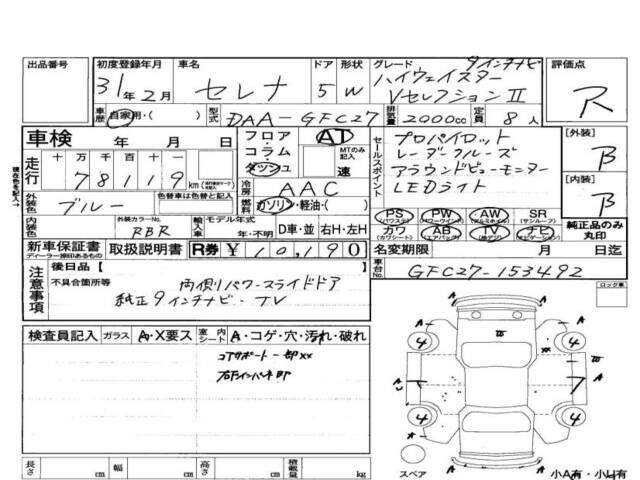 出品番号
初度登録年月
31年2月
車名
セレナ
ドア 形状
5 W
グレード
9インチナビ
ハイウェイスター
VセレクションⅡ
評価点
R
車歴 自家用・( )
型式 DAA-GFC27
排気量 2000cc
定員 8人
車検 年 月 日
走行 十万 千 百 十
78119km
フロア・コラム・ダッシュ
AT
MTのみ記入
速
冷房 AAC
燃料 ガソリン・軽油・( )
外装色 ブルー
色替車は色替と記入
内装色
外装カラーNo.
RBR
輸入車
モデル年式
年・不明
D車・並 右H・左H
セールスポイント
プロパイロット
レーダクルーズ
アラウンドビューモニター
LEDライト
PS (パワステ) PW (パワーウインド) AW (アルミホイル) SR (サンルーフ)
カワ (カワシート) AB (エアバッグ) TV (地デジ) ナビ (ナビゲーション)
純正品のみ丸印
[外装]
B
[内装]
B
現在色を記入→
新車保証書 取扱説明書 R券 ¥10,190
ディーラー捺印あるもの
名変期限 月 日迄
車台No. GFC27-153492
注意事項
後日品【 】
不具合箇所等
両側パワースライドドア
純正9インチナビ・TV
ロック車
検査員記入 ガラス A・X要ス 室内 シート A・コゲ・穴・汚れ・破れ
コアサポート一部XX
4 4
4 4
スペア
小A有・小U有
長さ cm 幅 cm 高さ cm 積載量 kg